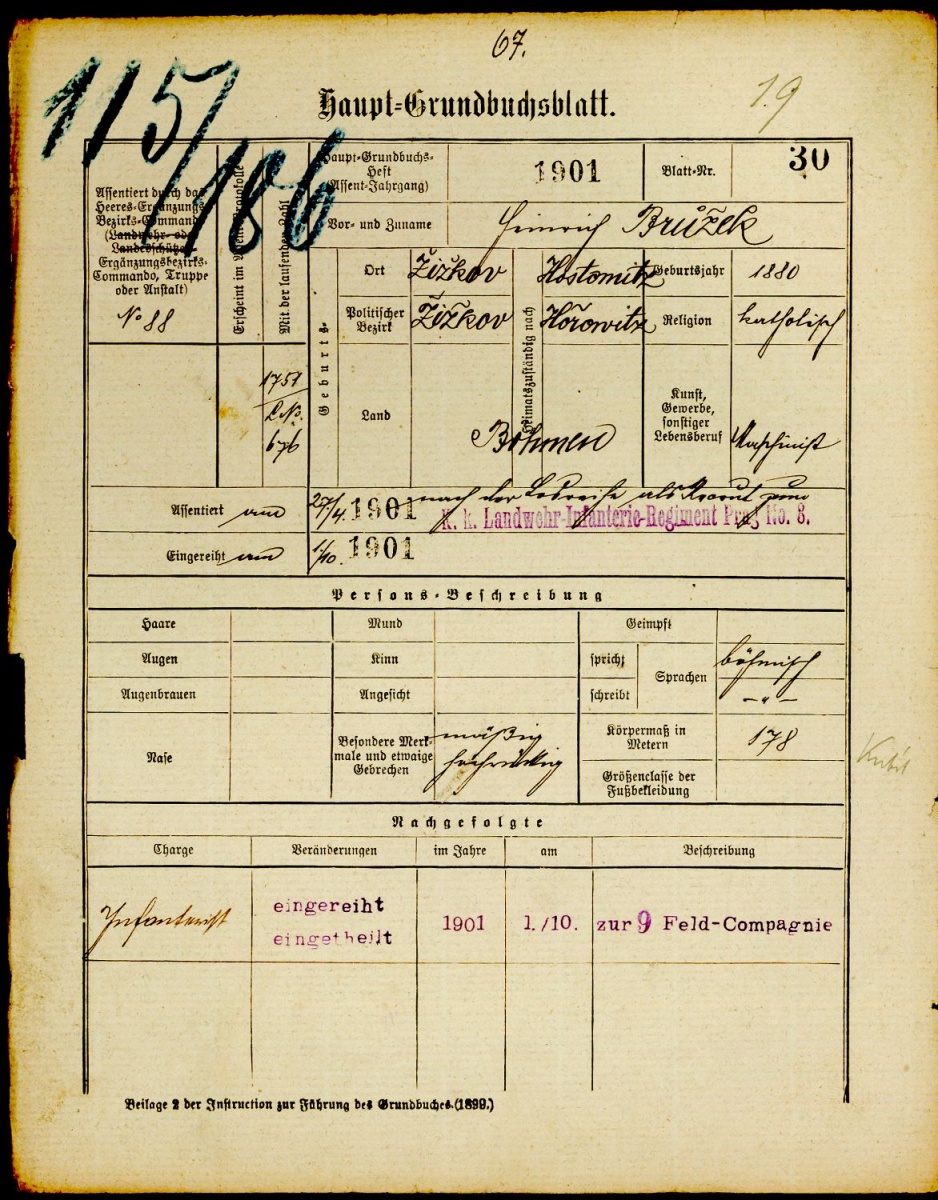 67.
19
115/186
Haupt-Grundbuchsblatt.
Assentiert durch das
Heeres-Ergänzungs-
Bezirks-Commando
(Landwehr- oder
Landesschützen-
Ergänzungsbezirks-
Commando, Truppe
oder Anstalt)
No 88
Erscheint im Assent-Protokolle
Mit der laufenden Zahl
1751
L.N.
676
Haupt-Grundbuchs-
Heft
(Assent-Jahrgang)
1901
Blatt-Nr.
30
Vor- und Zuname
Heinrich Bružek
Geburts-
Ort
Žižkov
Heimatszuständig nach
Hostomitz
Geburtsjahr
1880
Politischer
Bezirk
Žižkov
Hořowitz
Religion
katholisch
Land
Böhmen
Kunst,
Gewerbe,
sonstiger
Lebensberuf
Maschinist
Assentiert am
27/4. 1901 nach der Losreihe als Recrut zum
K. k. Landwehr-Infanterie-Regiment Prag No. 8.
Eingereiht am
1/10. 1901
Persons-Beschreibung
Haare
Mund
Geimpft
Augen
Kinn
spricht
Sprachen
böhmisch
Augenbrauen
Angesicht
schreibt
-"-
Nase
Besondere Merk-
male und etwaige
Gebrechen
mäßig
hochrückig
Körpermaß in
Metern
178
Größenclasse der
Fußbekleidung
Nachgefolgte
Charge
Veränderungen
im Jahre
am
Beschreibung
Infanterist
eingereiht
eingetheilt
1901
1./10.
zur 9 Feld-Compagnie
Beilage 2 der Instruction zur Führung des Grundbuches (1899.)